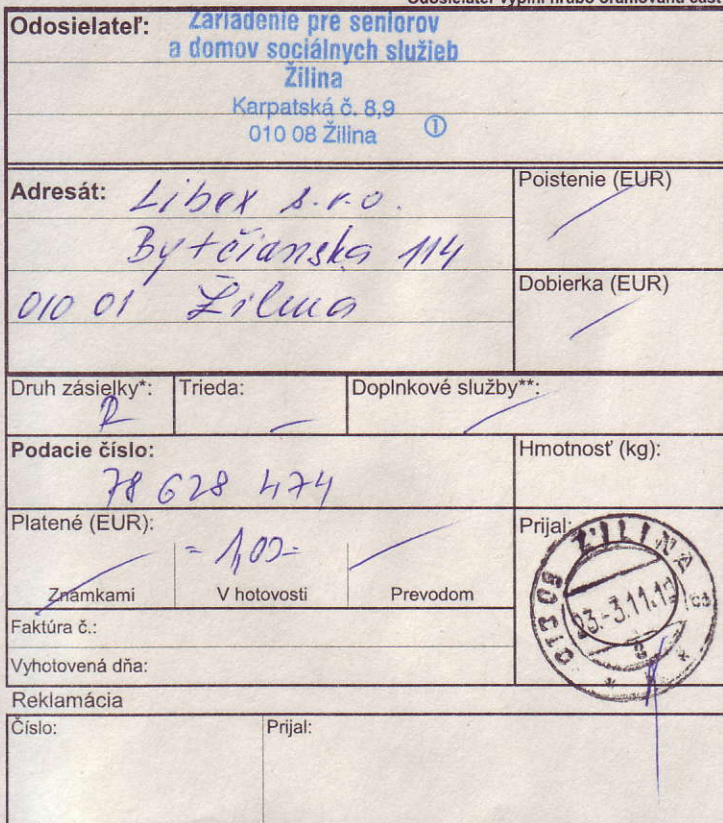 Odosielateľ vyplní hrubo orámovanú časť
Odosielateľ:
Zariadenie pre seniorov
a domov sociálnych služieb
Žilina
Karpatská č. 8,9
010 08 Žilina ①
Adresát: Libex s.r.o.
Bytčianska 114
010 01 Žilina
Poistenie (EUR)
Dobierka (EUR)
Druh zásielky*: R
Trieda: –
Doplnkové služby**:
Podacie číslo:
78 628 474
Hmotnosť (kg):
Platené (EUR):
= 1,00=
Známkami V hotovosti Prevodom
Prijal:
ŽILINA
Faktúra č.:
Vyhotovená dňa:
Reklamácia
Číslo: Prijal: